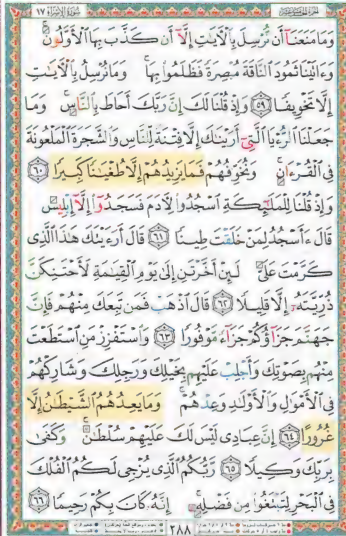 سُورَةُ الإِسْرَاءِ ١٧
وَمَا مَنَعَنَآ أَن نُّرْسِلَ بِالْآيَٰتِ إِلَّآ أَن كَذَّبَ بِهَا الْأَوَّلُونَ
وَءَاتَيْنَا ثَمُودَ النَّاقَةَ مُبْصِرَةً فَظَلَمُوا بِهَا وَمَا نُرْسِلُ بِالْآيَٰتِ
إِلَّا تَخْوِيفًا ٥٩ وَإِذْ قُلْنَا لَكَ إِنَّ رَبَّكَ أَحَاطَ بِالنَّاسِ وَمَا
جَعَلْنَا الرُّءْيَا الَّتِي أَرَيْنَٰكَ إِلَّا فِتْنَةً لِّلنَّاسِ وَالشَّجَرَةَ الْمَلْعُونَةَ
فِي الْقُرْءَانِ وَنُخَوِّفُهُمْ فَمَا يَزِيدُهُمْ إِلَّا طُغْيَٰنًا كَبِيرًا ٦٠
وَإِذْ قُلْنَا لِلْمَلَٰٓئِكَةِ اسْجُدُوا لِآدَمَ فَسَجَدُوٓا إِلَّآ إِبْلِيسَ
قَالَ ءَأَسْجُدُ لِمَنْ خَلَقْتَ طِينًا ٦١ قَالَ أَرَءَيْتَكَ هَٰذَا الَّذِي
كَرَّمْتَ عَلَيَّ لَئِنْ أَخَّرْتَنِ إِلَىٰ يَوْمِ الْقِيَٰمَةِ لَأَحْتَنِكَنَّ
ذُرِّيَّتَهُۥٓ إِلَّا قَلِيلًا ٦٢ قَالَ اذْهَبْ فَمَن تَبِعَكَ مِنْهُمْ فَإِنَّ
جَهَنَّمَ جَزَآؤُكُمْ جَزَآءً مَّوْفُورًا ٦٣ وَاسْتَفْزِزْ مَنِ اسْتَطَعْتَ
مِنْهُم بِصَوْتِكَ وَأَجْلِبْ عَلَيْهِم بِخَيْلِكَ وَرَجِلِكَ وَشَارِكْهُمْ
فِي الْأَمْوَٰلِ وَالْأَوْلَٰدِ وَعِدْهُمْ وَمَا يَعِدُهُمُ الشَّيْطَٰنُ إِلَّا
غُرُورًا ٦٤ إِنَّ عِبَادِي لَيْسَ لَكَ عَلَيْهِمْ سُلْطَٰنٌ وَكَفَىٰ
بِرَبِّكَ وَكِيلًا ٦٥ رَّبُّكُمُ الَّذِي يُزْجِي لَكُمُ الْفُلْكَ
فِي الْبَحْرِ لِتَبْتَغُوا مِن فَضْلِهِۦٓ إِنَّهُۥ كَانَ بِكُمْ رَحِيمًا ٦٦
٢٨٨